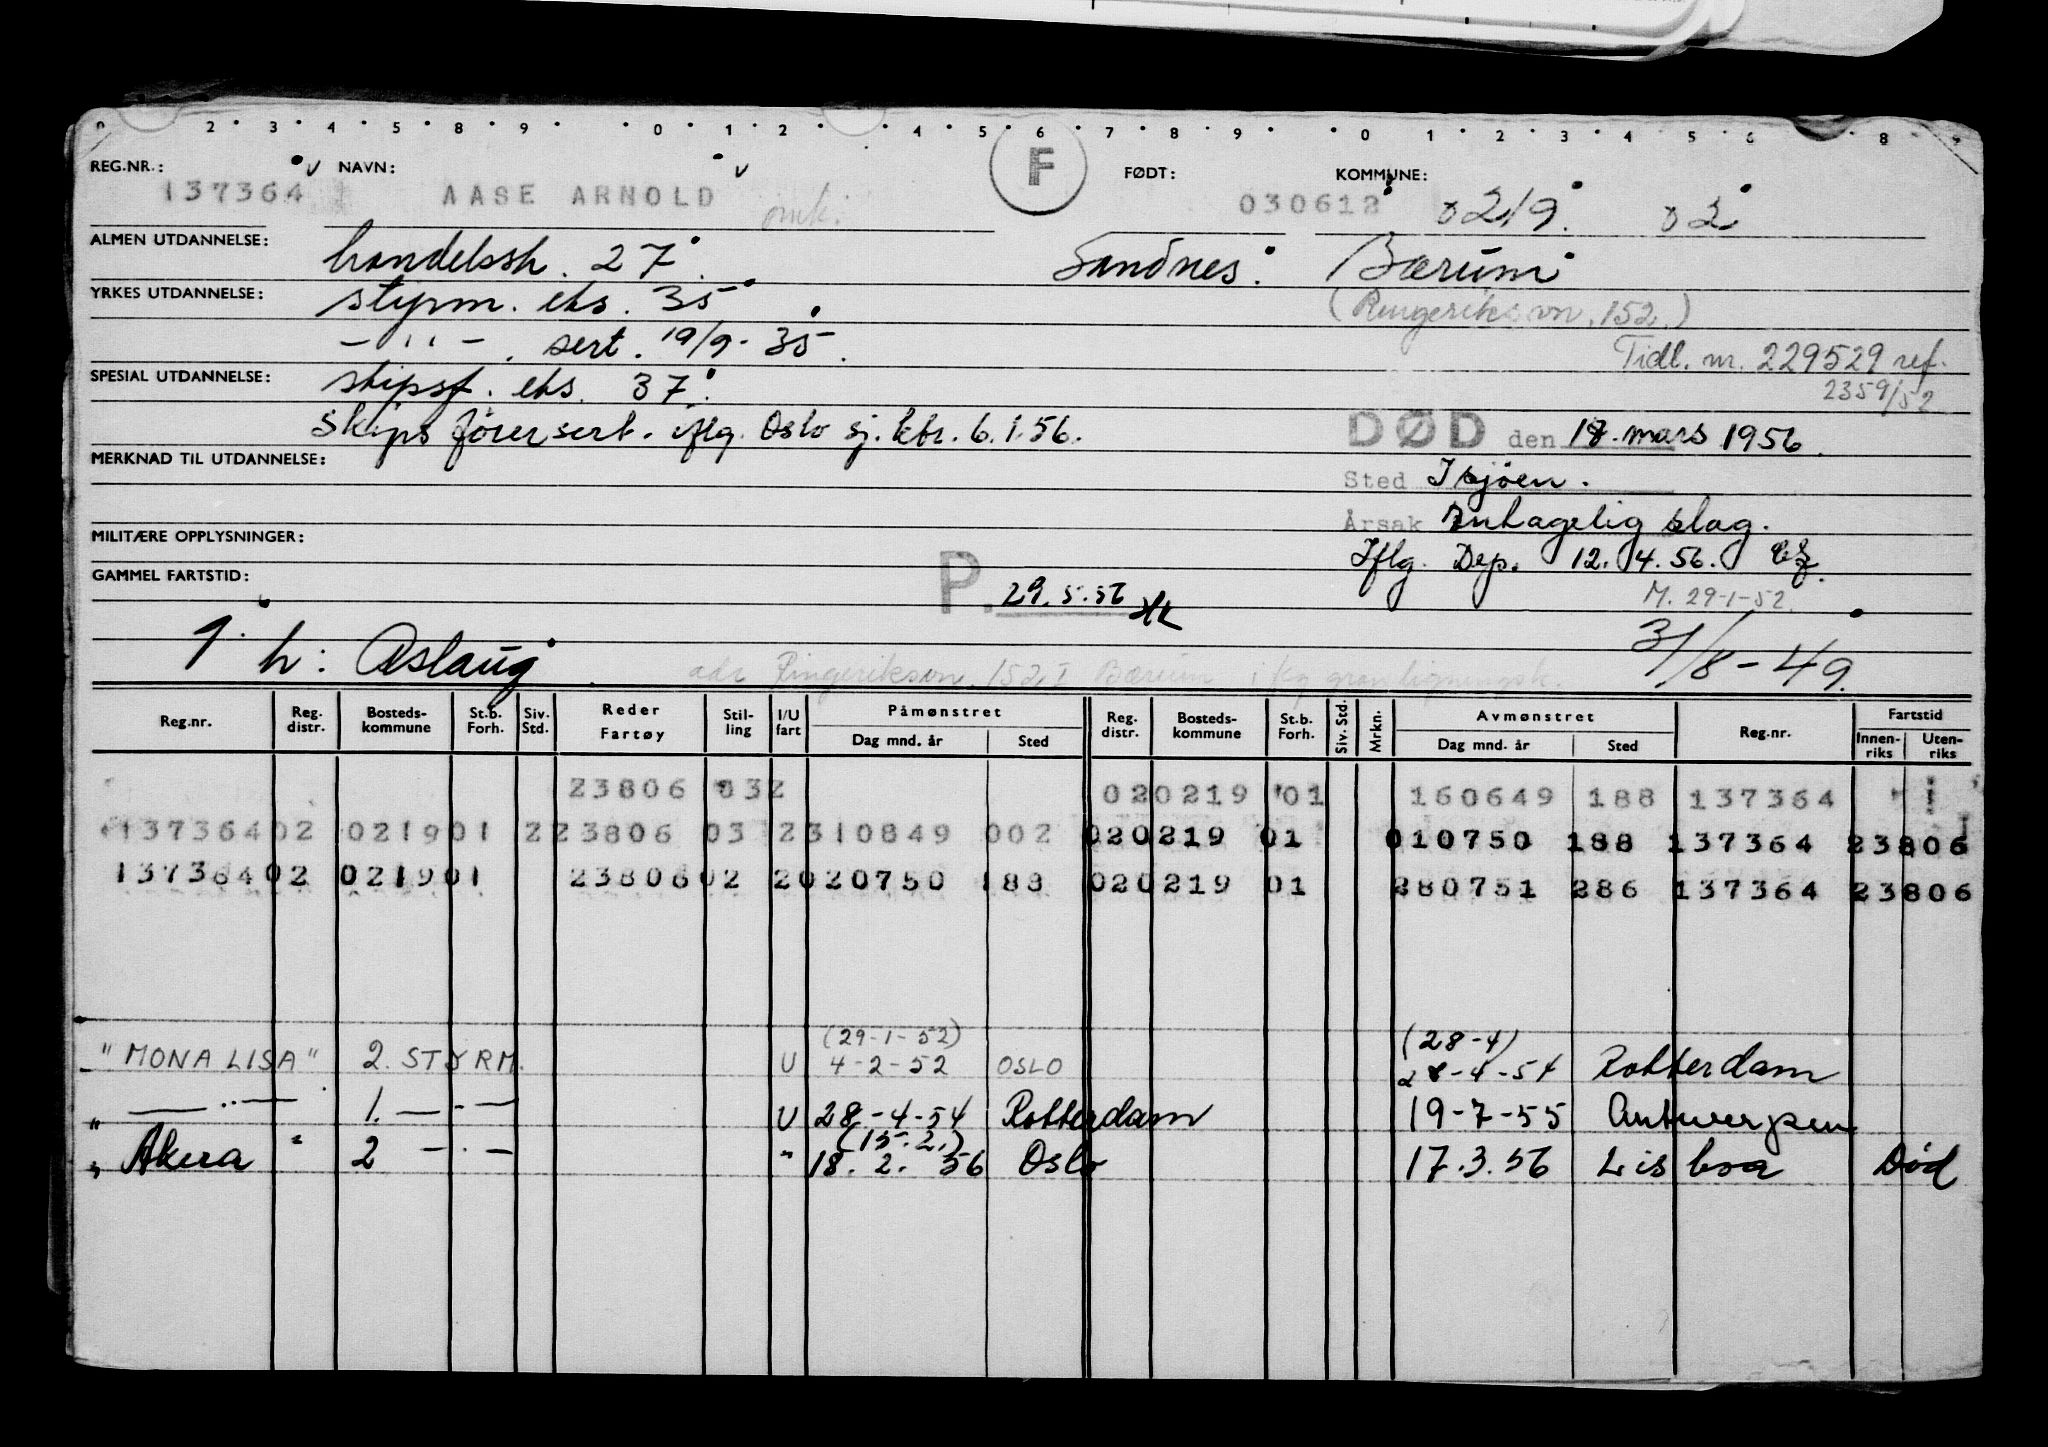 2 3 4 5 8 9 0 1 2 4 5 6 7 8 9 0 1 2 3 4 5 6 8 9
REG.NR.: NAVN: F FØDT: KOMMUNE:
137364 AASE ARNOLD omk. 030612 0219 02
ALMEN UTDANNELSE: handelssk. 27 Sandnes. Bærum
YRKES UTDANNELSE: styrm. eks. 35 (Ringeriksvn. 152)
— " — . sert. 19/9-35. Tidl. nr. 229529 ref.
SPESIAL UTDANNELSE: skipsf. eks. 37. 2359/52
skipsførersert. iflg. Oslo sj.ktr. 6.1.56. DØD den 18. mars 1956.
MERKNAD TIL UTDANNELSE:
Sted I sjøen.
Årsak Antagelig slag.
MILITÆRE OPPLYSNINGER:
Iflg. Dep. 12.4.56.
GAMMEL FARTSTID: P. 29.5.56 M. 29-1-52.
1 h: Aslaug 31/8-49.
adr Ringeriksvn. 152 I Bærum
Reg.nr. Reg. distr. Bosteds-kommune St.b. Forh. Siv. Std. Reder Fartøy Stil-ling I/U fart Påmønstret Dag mnd. år Sted Reg. distr. Bosteds-kommune St.b. Forh. Siv. Std. Mrkn. Avmønstret Dag mnd. år Sted Reg.nr. Fartstid Innen-riks Uten-riks
23806 03 2 020219 01 160649 188 137364
137364 02 0219 01 2 23806 03 2 310849 002 020219 01 010750 188 137364 23806
137364 02 0219 01 23806 02 2 020750 188 020219 01 280751 286 137364 23806
(29-1-52) (28-4)
"MONA LISA" 2. STYRM. U 4-2-52 OSLO 28-4-54 Rotterdam
" — " — 1. — " — U 28-4-54 Rotterdam 19-7-55 Antwerpen
(15.2.)
" Akera " 2 — " — " 18. 2. 56 Oslo 17.3.56 Lisboa Død